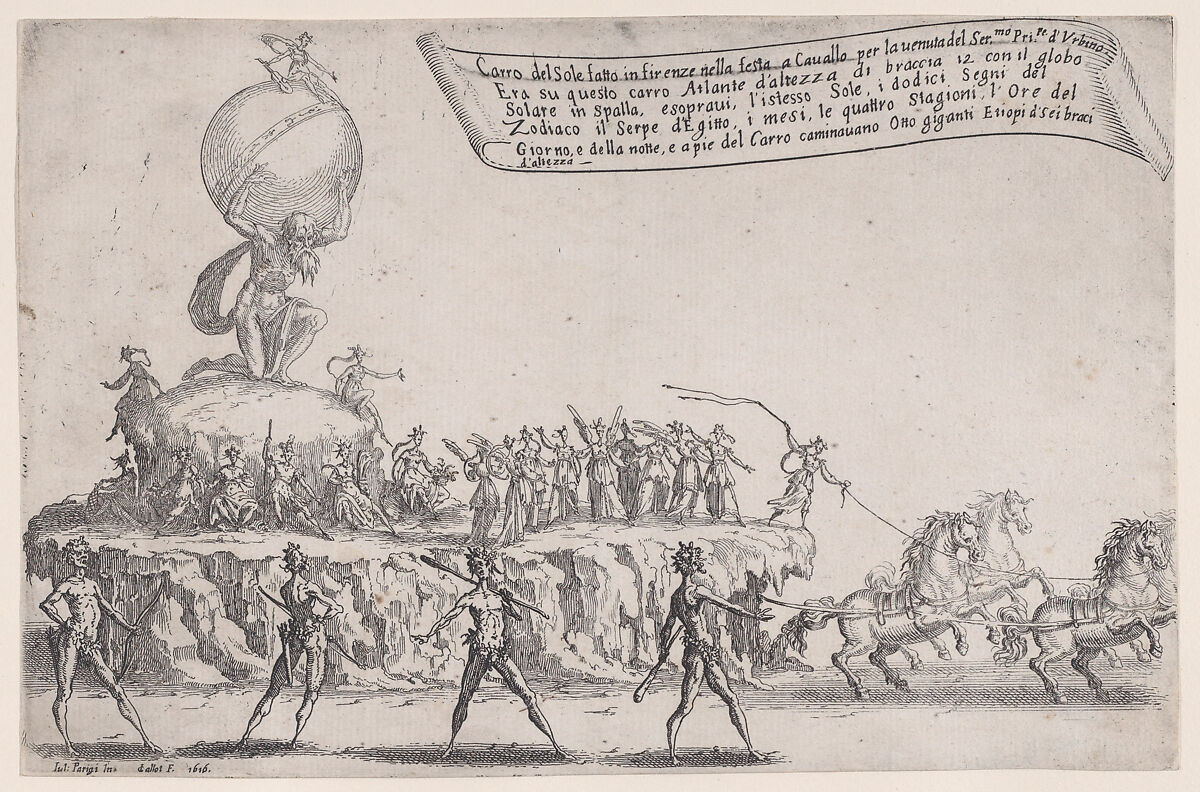 Carro del Sole fatto in firenze nella festa a Cauallo per la uenuta del Ser.mo Pri.pe d'Vrbino
Era su questo carro Atlante d'altezza di braccia 12 con il globo
Solare in Spalla, esoprauí, l'istesso Sole, i dodici Segni del
Zodiaco il Serpe d'Egitto, i mesi, le quattro Stagioni, l'Ore del
Giorno, e della notte, e a pie del Carro caminauano Otto giganti Etiopi d'Sei braci
d'altezza
Iul: Parigi In. Callot F. 1616.